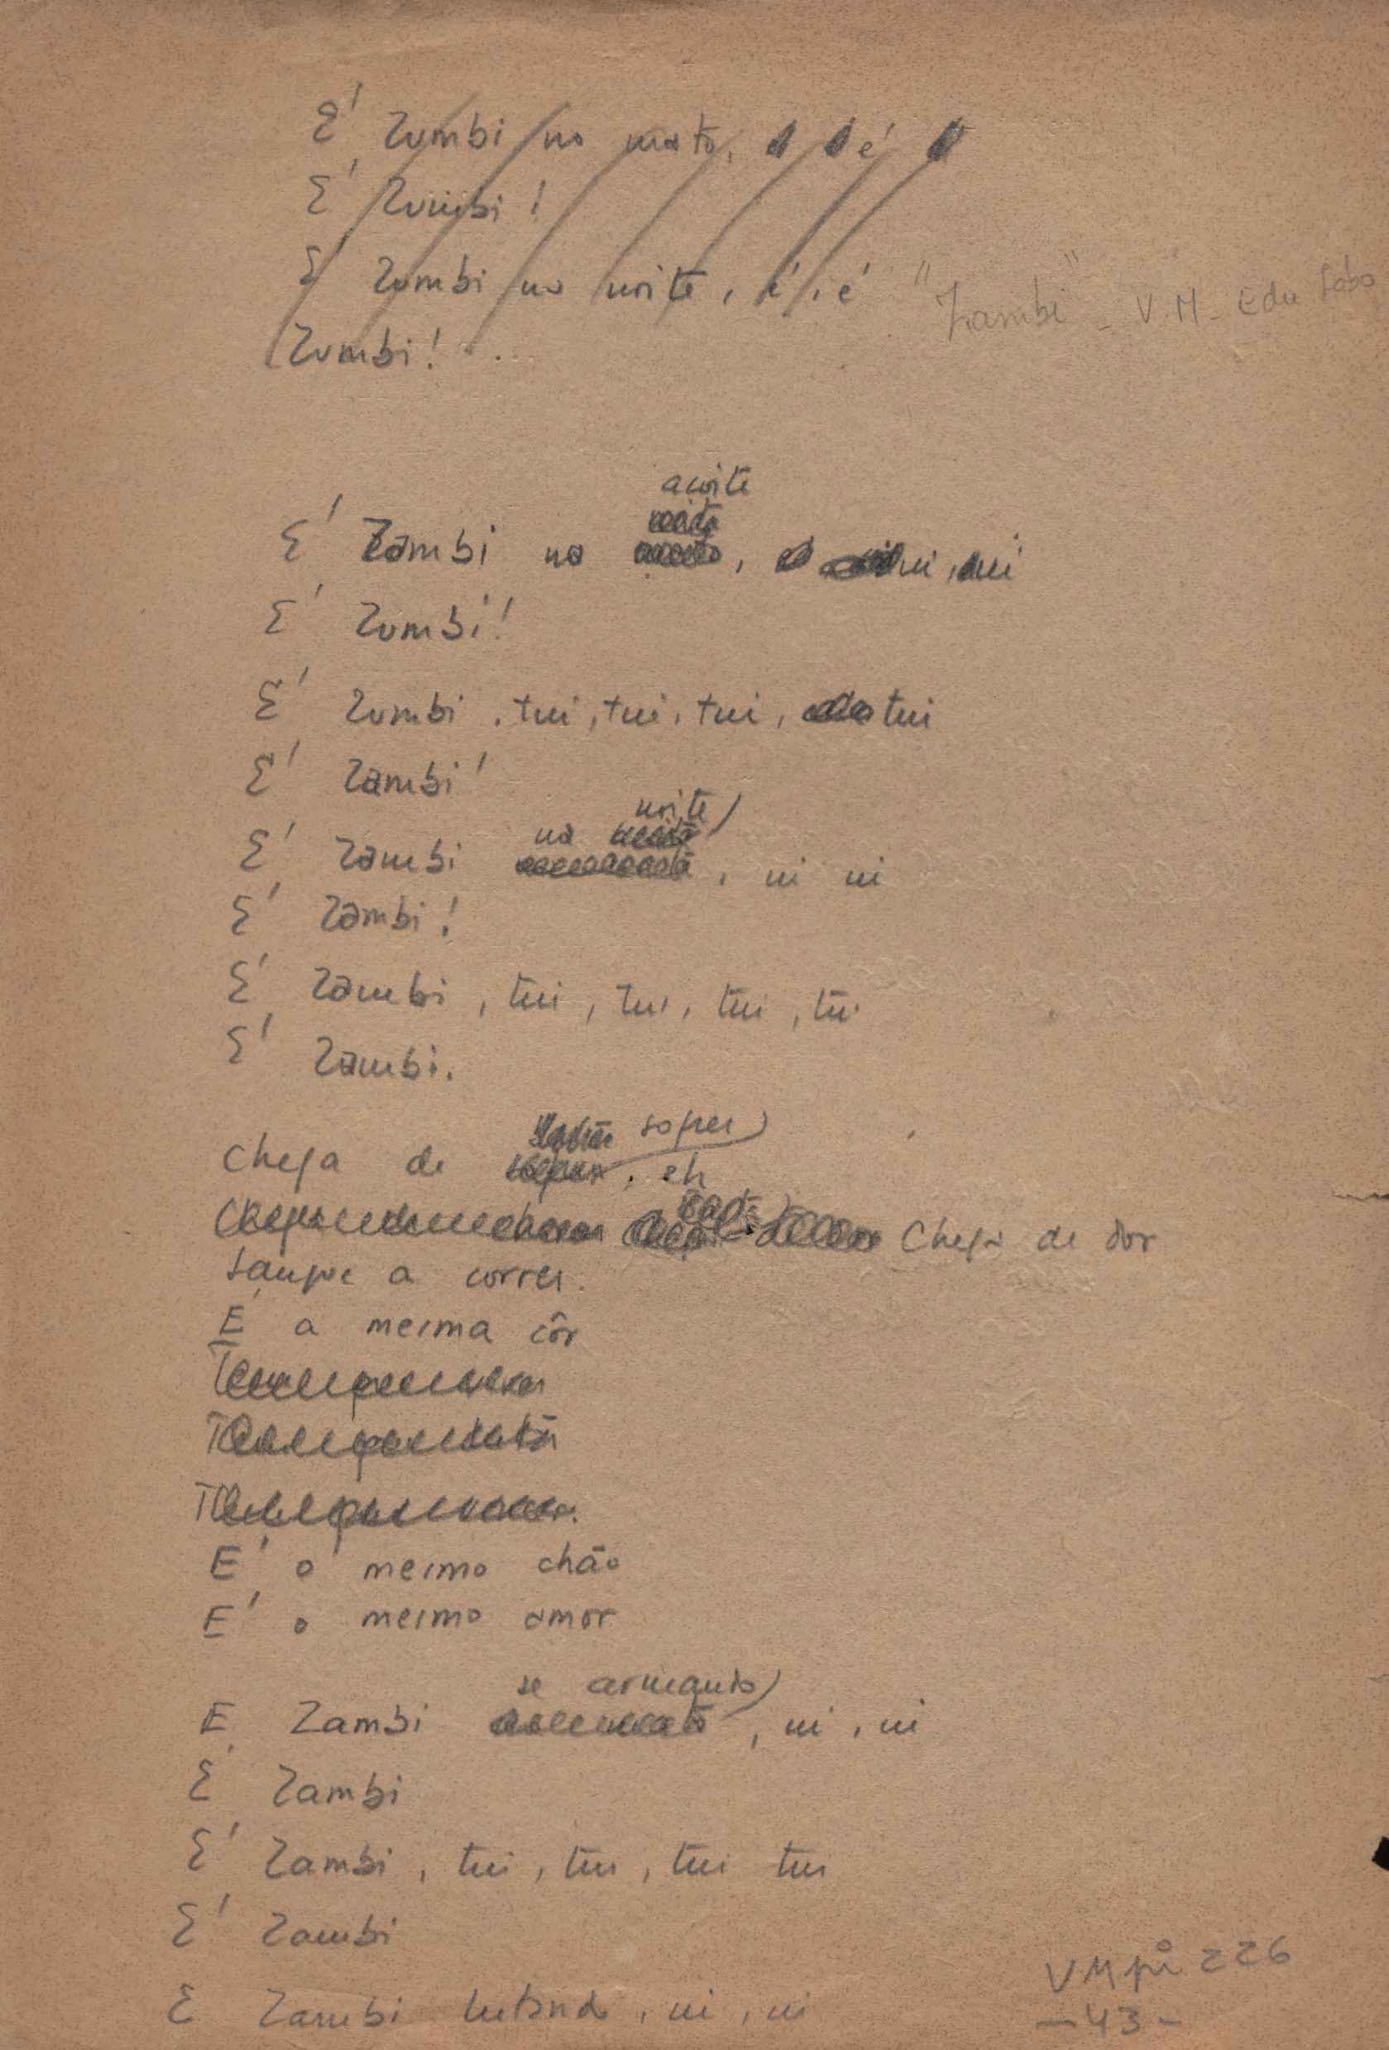 E' Zumbi no mato, é
E' Zumbi!
E' Zumbi na noite, é, é
Zumbi!...
"Zambi" - V.M - Edu Lobo
açoite
E' Zambi no , ui, ui
E' Zumbi!
E' Zumbi, tui, tui, tui, tui
E' Zambi!
noite
na
E' Zambi , ui ui
E' Zambi!
E' Zambi, tui, tui, tui, tui
E' Zambi.
sofrer
Chega de , eh
Chega de dor
Sangue a correr.
E' a mesma côr
E' o mesmo chão
E' o mesmo amor
se armando
E Zambi , ui, ui
E Zambi
E' Zambi, tui, tui, tui tui
E' Zambi
E Zambi lutando, ui, ui
VMpi 226
- 43 -